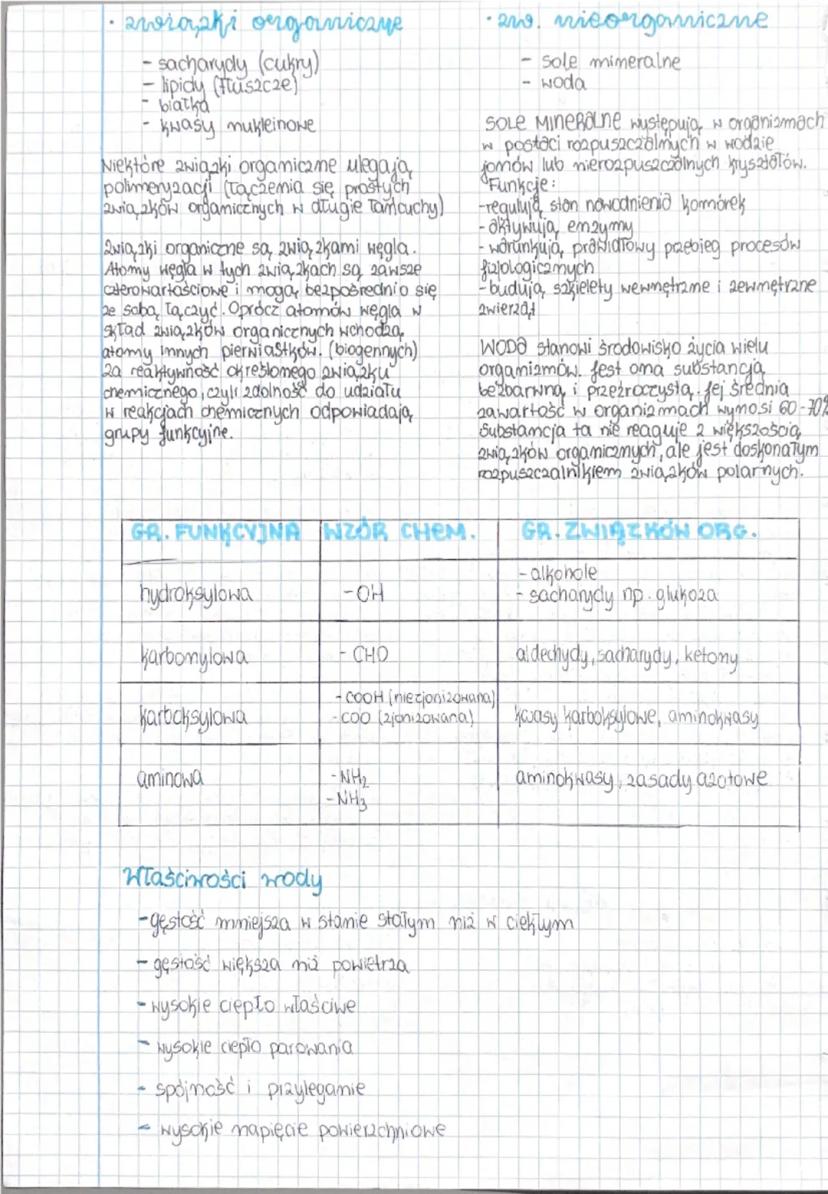 · związki organiczne
- sacharydy (cukry)
- lipidy (tłuszcze)
- białka
- kwasy nukleinowe
Niektóre związki organiczne ulegają
polimeryzacji (łączenia się prostych
związków organicznych w długie łańcuchy)
Związki organiczne są związkami węgla.
Atomy węgla w tych związkach są zawsze
czterowartościowe i mogą bezpośrednio się
ze sobą łączyć. Oprócz atomów węgla w
skład związków organicznych wchodzą
atomy innych pierwiastków. (biogennych)
Za reaktywność określonego związku
chemicznego, czyli zdolność do udziału
w reakcjach chemicznych odpowiadają
grupy funkcyjne.
· zw. nieorganiczne
- sole mineralne
- woda
SOLE MINERALNE występują w organizmach
w postaci rozpuszczalnych w wodzie
jonów lub nierozpuszczalnych kryształów.
Funkcje:
-regulują stan nawodnienia komórek
-aktywują enzymy
-warunkują prawidłowy przebieg procesów
fizjologicznych
-budują szkielety wewnętrzne i zewnętrzne
zwierząt
WODA stanowi środowisko życia wielu
organizmów. Jest ona substancją
bezbarwną i przeźroczystą. Jej średnia
zawartość w organizmach wynosi 60-70%
Substancja ta nie reaguje z większością
związków organicznych, ale jest doskonałym
rozpuszczalnikiem związków polarnych.
GR. FUNKCYJNA WZÓR CHEM. GR. ZWIĄZKÓW ORG.
hydroksylowa -OH - alkohole
- sacharydy np. glukoza
karbonylowa - CHO aldechydy, sacharydy, ketony
karboksylowa -COOH (niezjonizowana)
-COO (zjonizowana) kwasy karboksylowe, aminokwasy
aminowa -NH₂ aminokwasy, zasady azotowe
-NH₃
Właściwości wody
-gęstość mniejsza w stanie stałym niż w ciekłym
- gęstość większa niż powietrza
- wysokie ciepło właściwe
- wysokie ciepło parowania
- spójność i przyleganie
- wysokie napięcie powierzchniowe